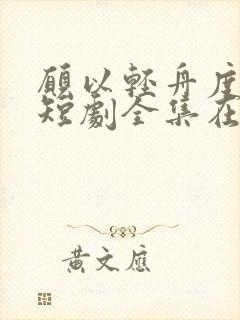 願以輕舟度
短劇全集在
黃文應